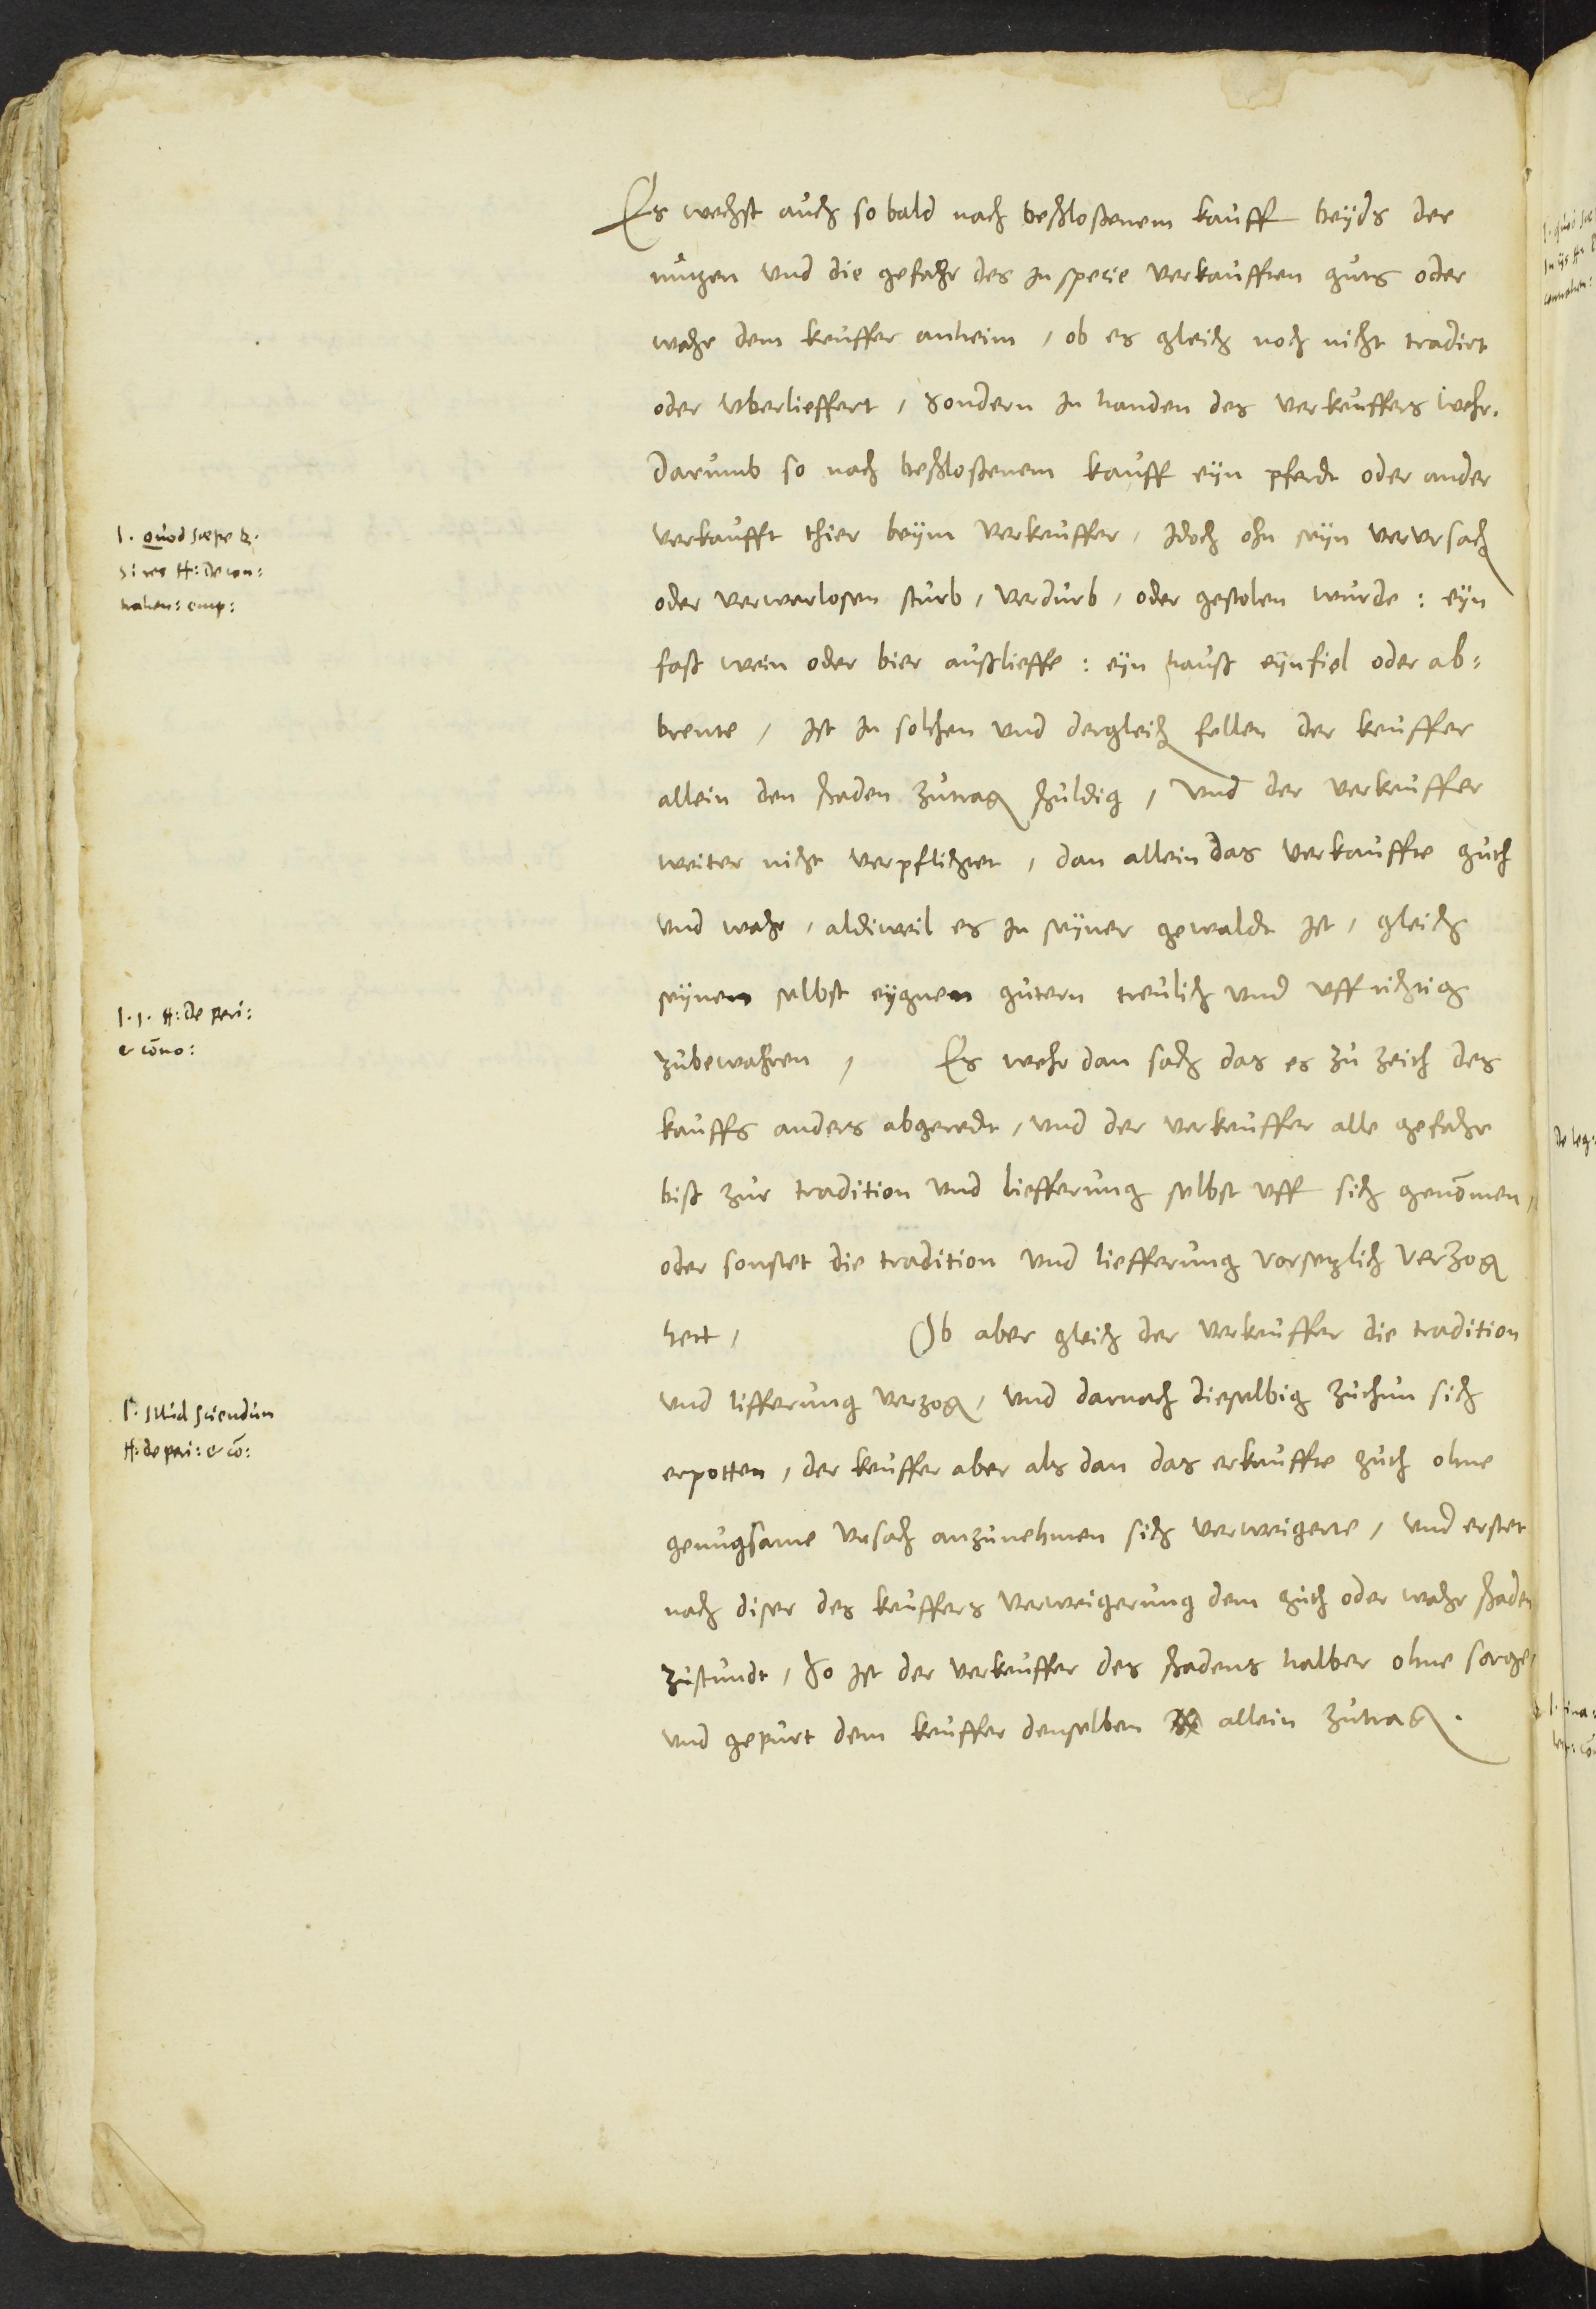 Es wechst auch so bald nach beschloßenem kauff beÿds der
nutzen vnd die gefahr des in specie verkaufften guts oder
wahr dem keuffer anheim, ob es gleich noch nicht tradirt
oder vberlieffert, sondern in handen des verkeuffers wehr.
Darumb so nach beschloßenem kauff eÿn pferdt oder ander
verkaufft thier beÿm verkeuffer, idoch ohn seÿn vervrsach
l. quod sæpe §.
si res ff: de con:
trahen: emp:
oder verwarlosen sturb, verdurb, oder gestolen wurde: eÿn
faß wein oder bier außlieffe: eÿn hauß eÿnfiel oder ab=
brente, ist in solchen vnd dergleich fellen der keuffer
allein den schaden zutragen schuldig, vnd der verkeuffer
weiter nicht verpflichtet, dan allein das verkauffte guth
vnd wahr, aldiweil es in seÿner gewaldt ist, gleich
seÿnem selbst eÿgnem gutern treulich vnd vffrichtig
l. 1. ff: de peri:
& com̄o:
zubewahren, Es wehr dan sach das es zu zeith des
kauffs anders abgeredt, vnd der verkeuffer alle gefahr
biß zur tradition vnd liefferung selbst vff sich genom̄en,
oder sonstet die tradition vnd liefferung vorsetzlich verzogen
hett, Ob aber gleich der verkeuffer die tradition
l. illud sciendum
ff: de peri: & co͞:
vnd lifferung verzogen, vnd darnach dieselbig zuthun sich
erpotten, der keuffer aber als dan das erkauffte guth ohne
genugsame vrsach anzunehmen sich verweigerte, vnd erstet
nach diser des keuffers verweigerung dem guth oder wahr schaden
zustundt, So ist der verkeuffer des schadens halber ohne sorge,
vnd gepurt dem keuffer denselben allein zutragen.